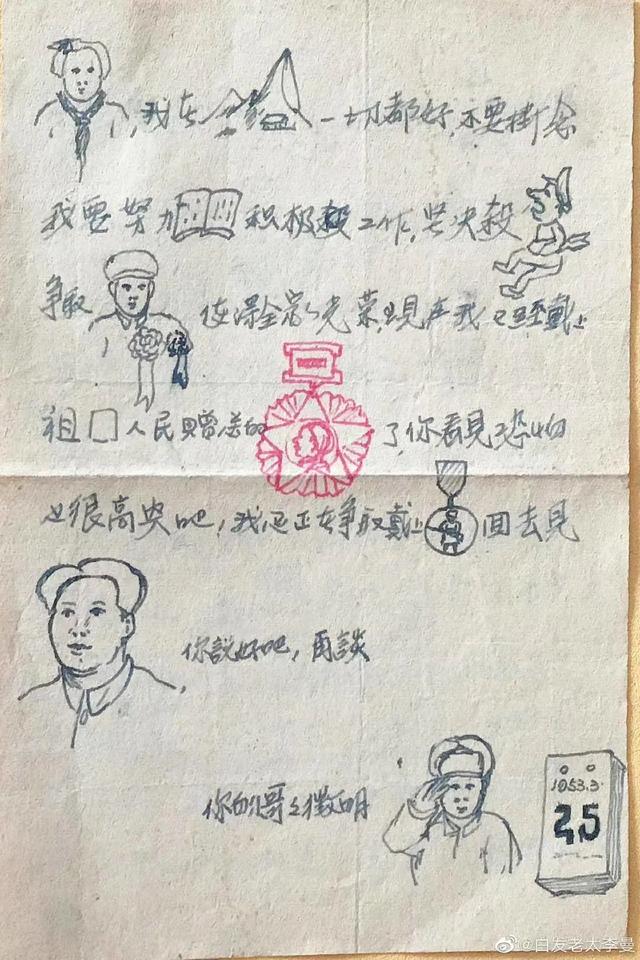 我在一切都好,不要掛念
我要努力积极工作,坚决殺
争取使得全家光荣,現在我已經戴上
祖人民贈送的了,你看見恐怕
也很高兴吧,我还正在争取戴上回去見
你說好吧,再談
你的哥哥
1953.3.
25
@白发老太李曼